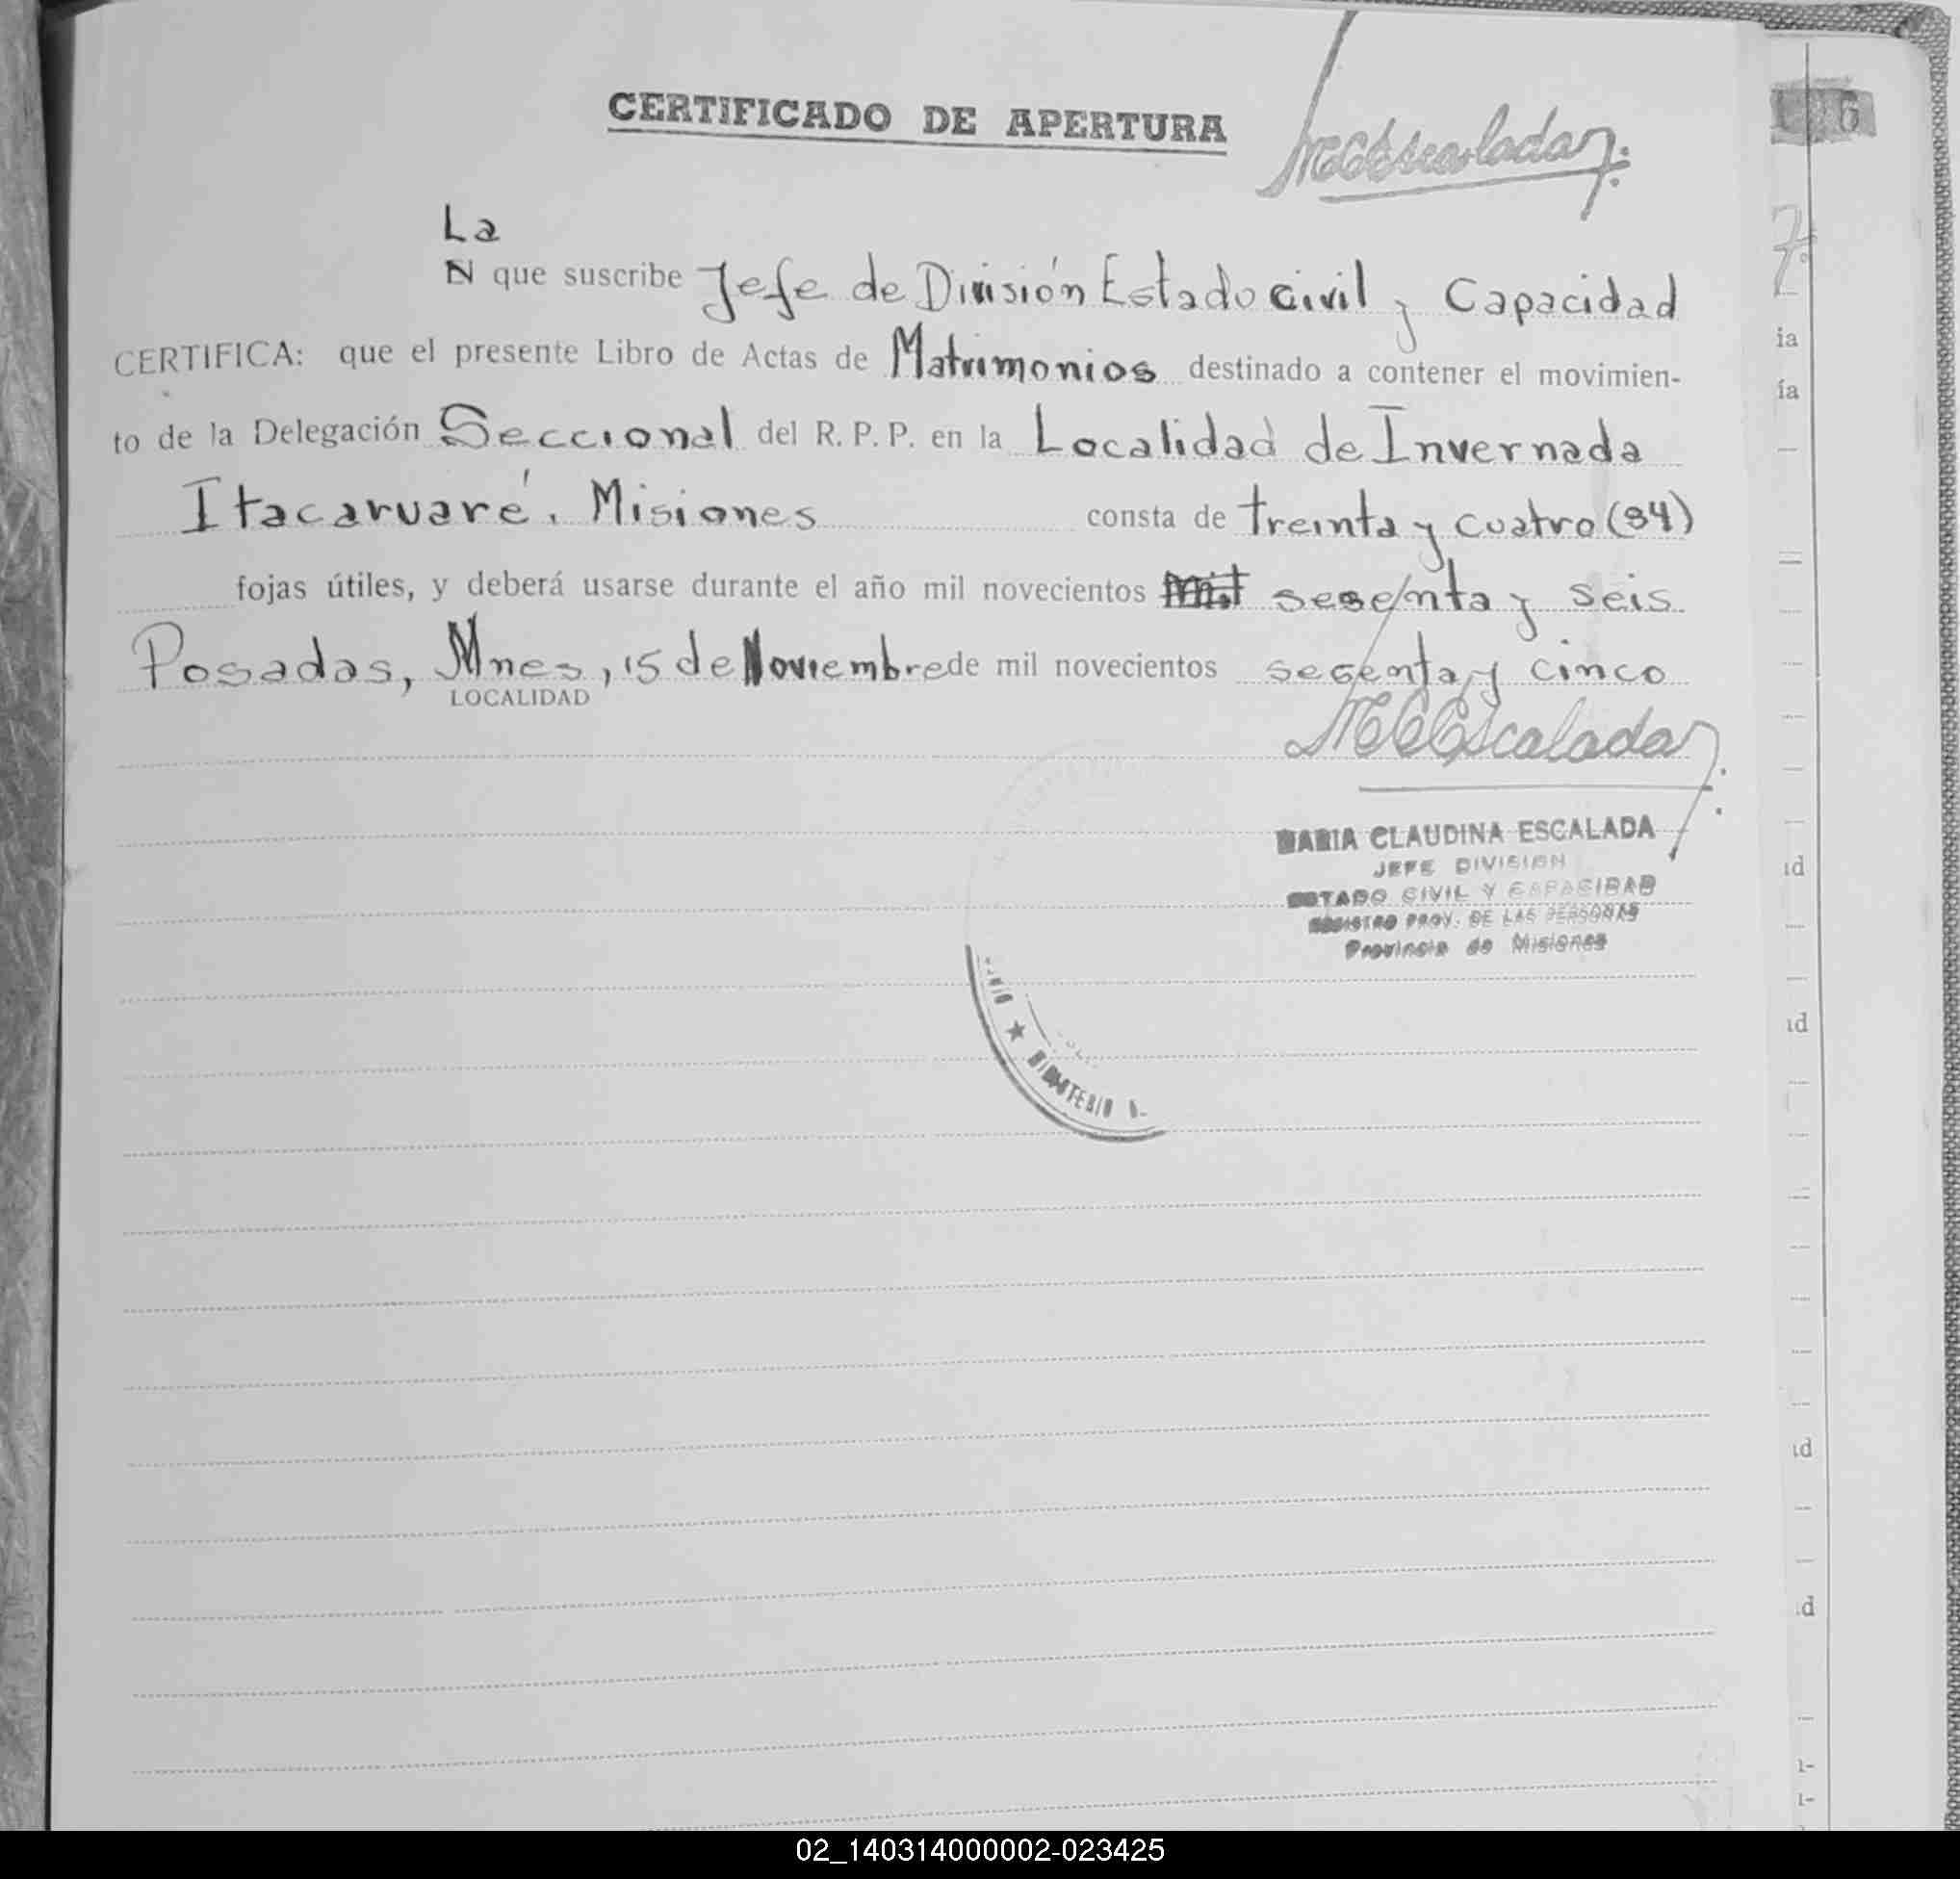 CERTIFICADO DE APERTURA
MCEscalada
La
N que suscribe Jefe de División Estado Civil y Capacidad
CERTIFICA: que el presente Libro de Actas de Matrimonios destinado a contener el movimien-
to de la Delegación Seccional del R. P. P. en la Localidad de Invernada
Itacaruaré. Misiones consta de treinta y cuatro (34)
fojas útiles, y deberá usarse durante el año mil novecientos mil sesenta y seis
Posadas, Mnes, 15 de Noviembre de mil novecientos sesenta y cinco
LOCALIDAD
MCEscalada
MARIA CLAUDINA ESCALADA
JEFE DIVISION
ESTADO CIVIL Y CAPACIDAD
REGISTRO PROV. DE LAS PERSONAS
Provincia de Misiones
MINISTERIO
6
7
ia
ía
id
id
id
id
02_140314000002-023425